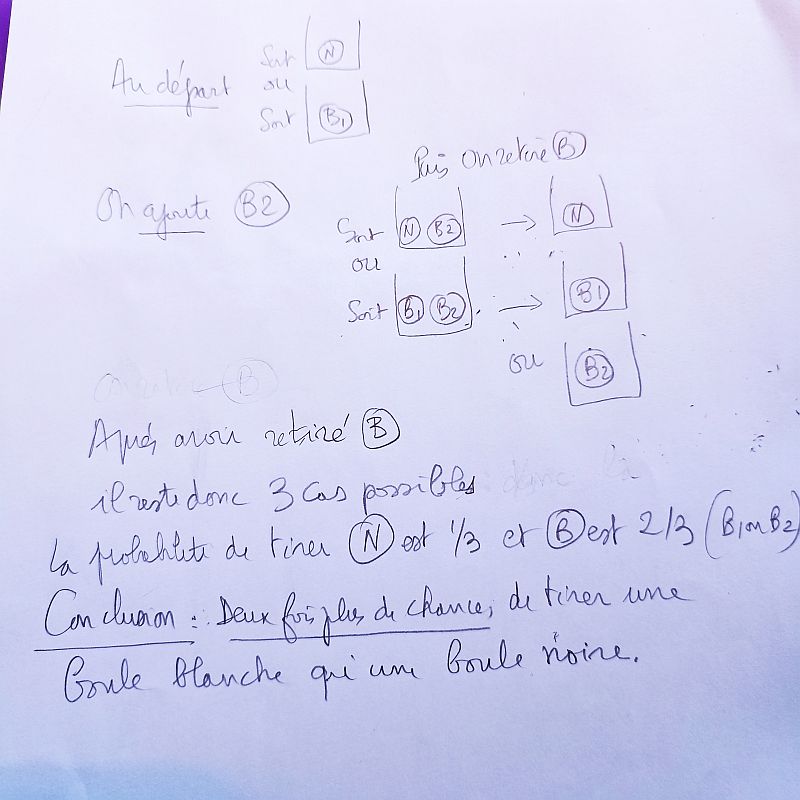 Soit N
Au départ ou
Soit B1
Puis on retire B
On ajoute B2
Soit N B2 → N
ou
Soit B1 B2 → B1
ou B2
B
Après avoir retiré B
il reste donc 3 cas possibles
la probabilité de tirer N est 1/3 et B est 2/3 (B1 ou B2)
Conclusion : Deux fois plus de chance, de tirer une
boule blanche qu'une boule noire.